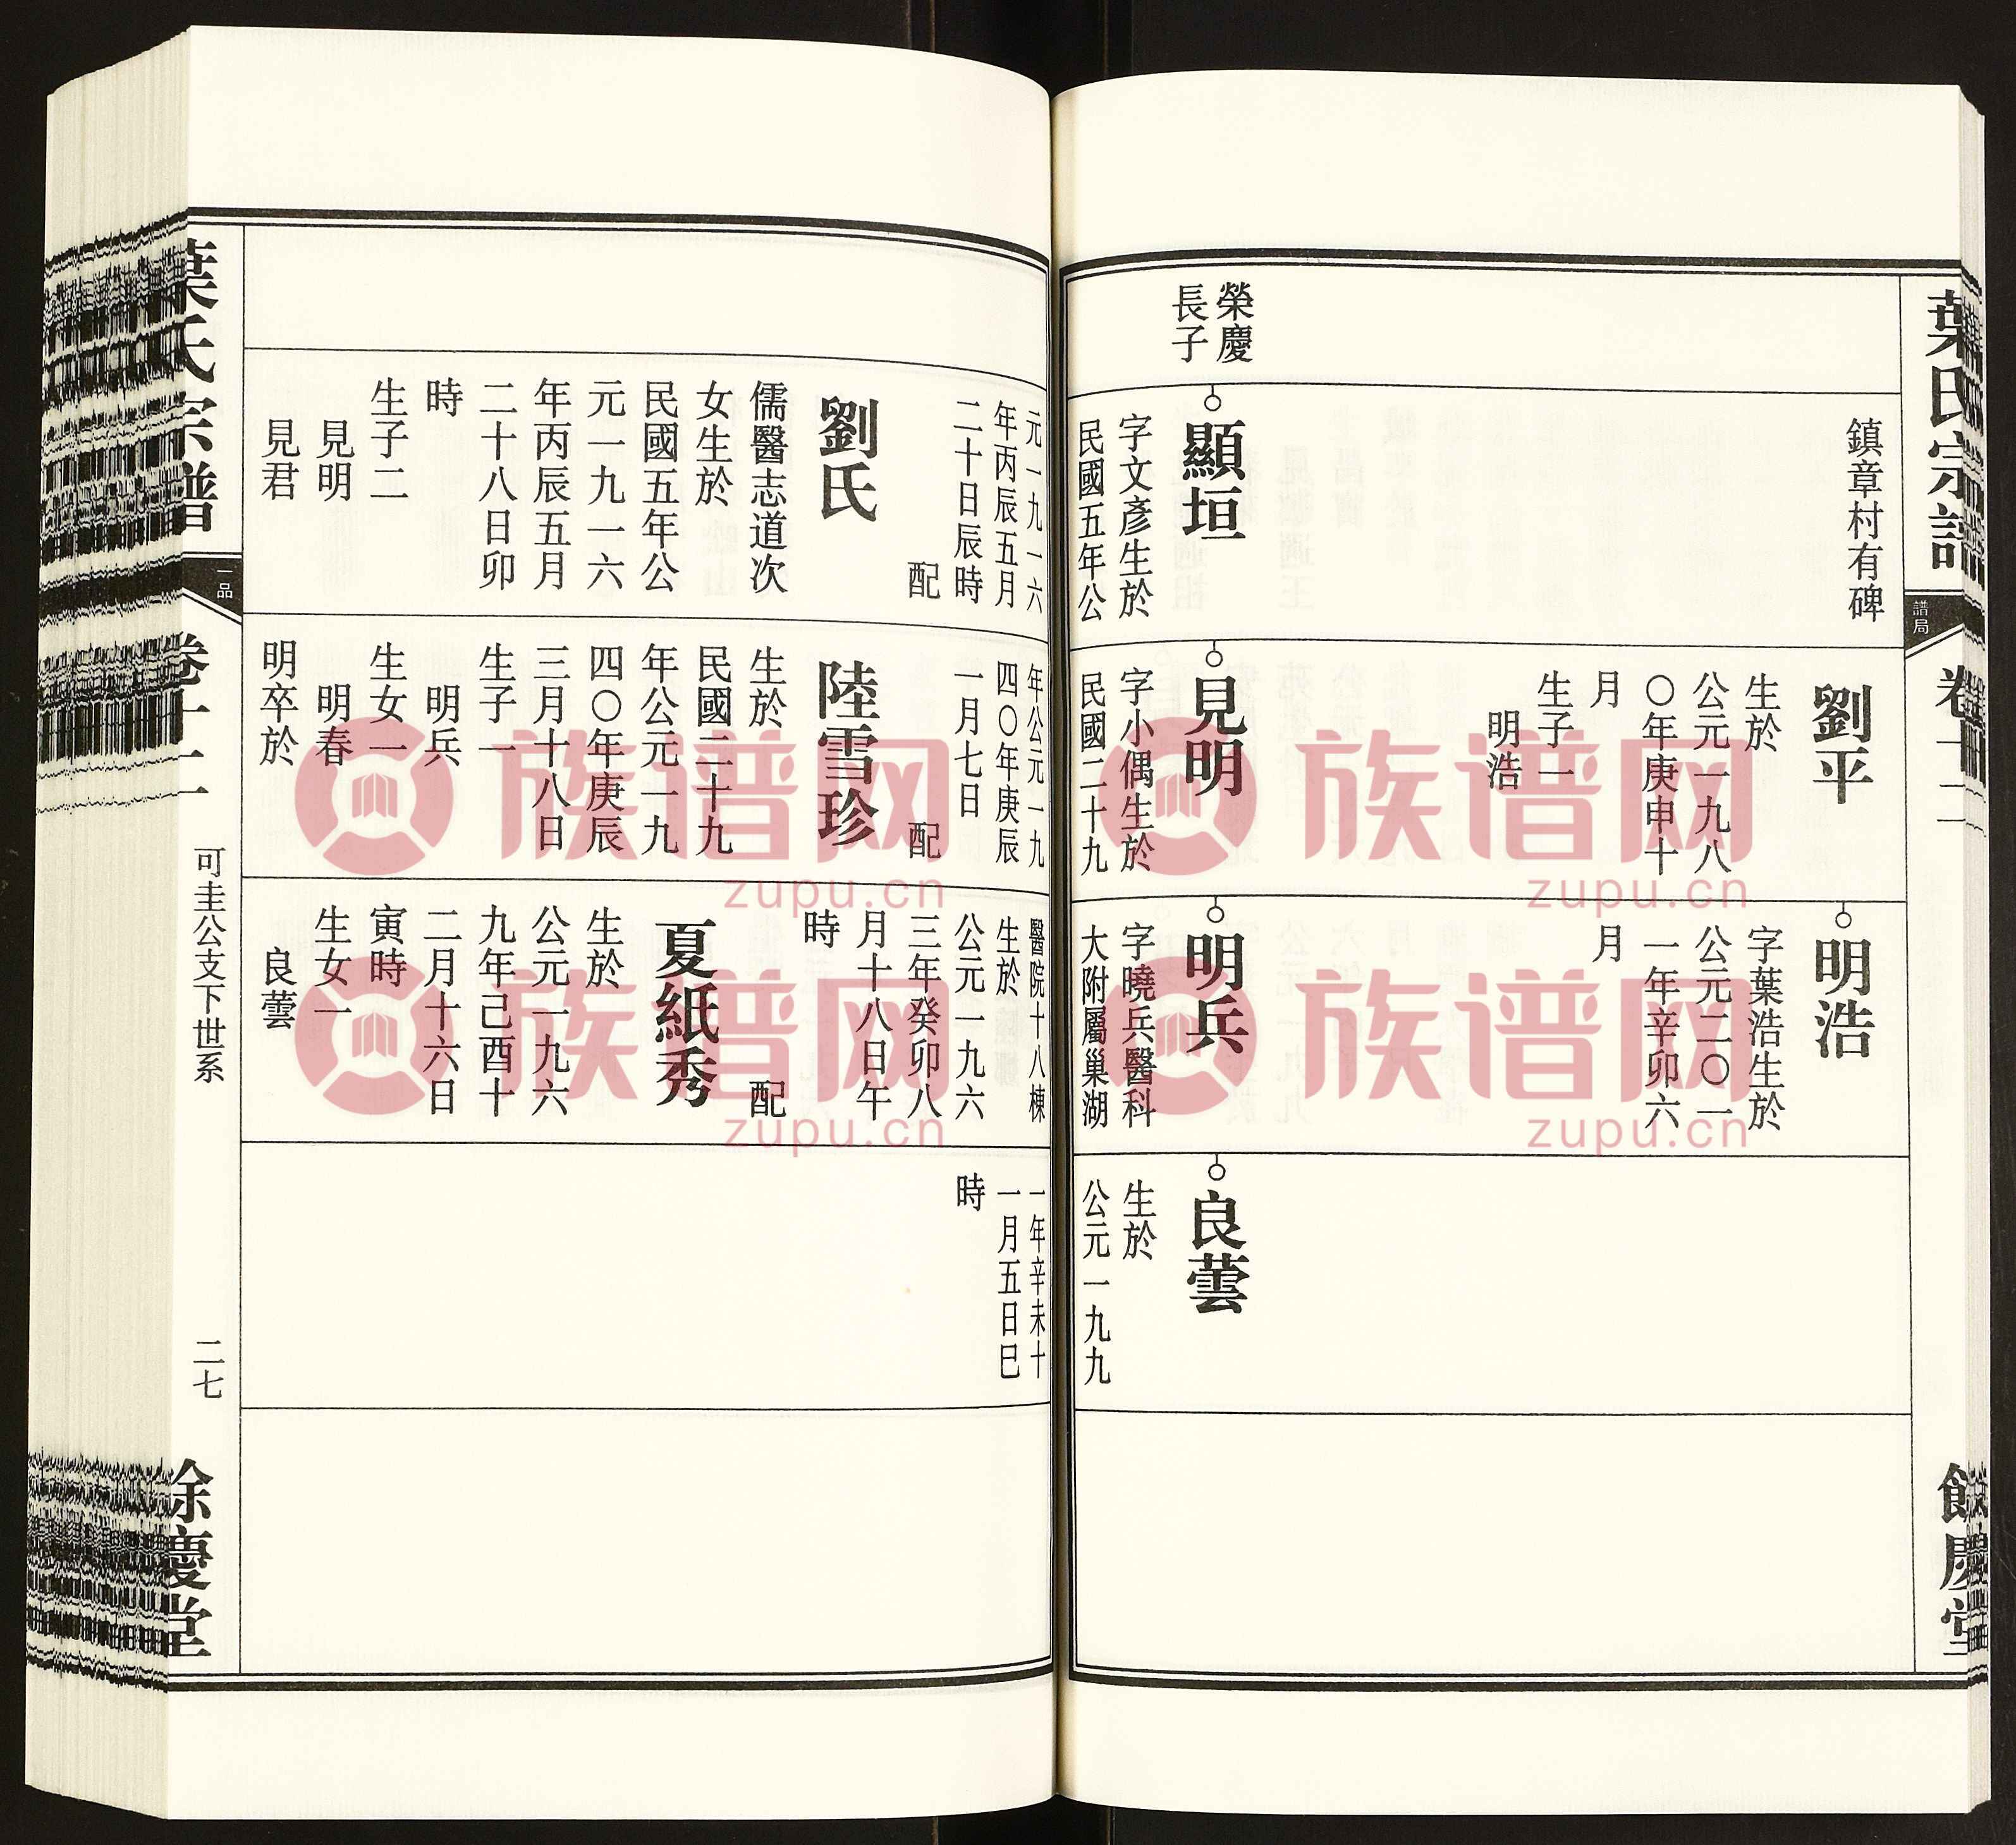 葉氏宗譜
譜局
卷十二
餘慶堂
鎮章村有碑
榮慶
長子
顯垣
字文彥生於
民國五年公
劉平
生於
公元一九八
〇年庚申十
月
生子一
明浩
見明
字小偶生於
民國二十九
明浩
字葉浩生於
公元二〇一
一年辛卯六
月
明兵
字曉兵醫科
大附屬巢湖
良蕓
生於
公元一九九
元一九一六
年丙辰五月
二十日辰時
配
劉氏
儒醫志道次
女生於
民國五年公
元一九一六
年丙辰五月
二十八日卯
時
生子二
見明
見君
年公元一九
四〇年庚辰
一月七日
配
陸雪珍
生於
民國二十九
年公元一九
四〇年庚辰
三月十八日
生子一
明兵
生女一
明春
明卒於
醫院十八棟
生於
公元一九六
三年癸卯八
月十八日午
時
配
夏紙秀
生於
公元一九六
九年己酉十
二月十六日
寅時
生女一
良蕓
一年辛未十
一月五日巳
時
葉氏宗譜
一品
卷十二
可圭公支下世系
二七
餘慶堂
族谱网
zupu.cn
族谱网
zupu.cn
族谱网
zupu.cn
族谱网
zupu.cn